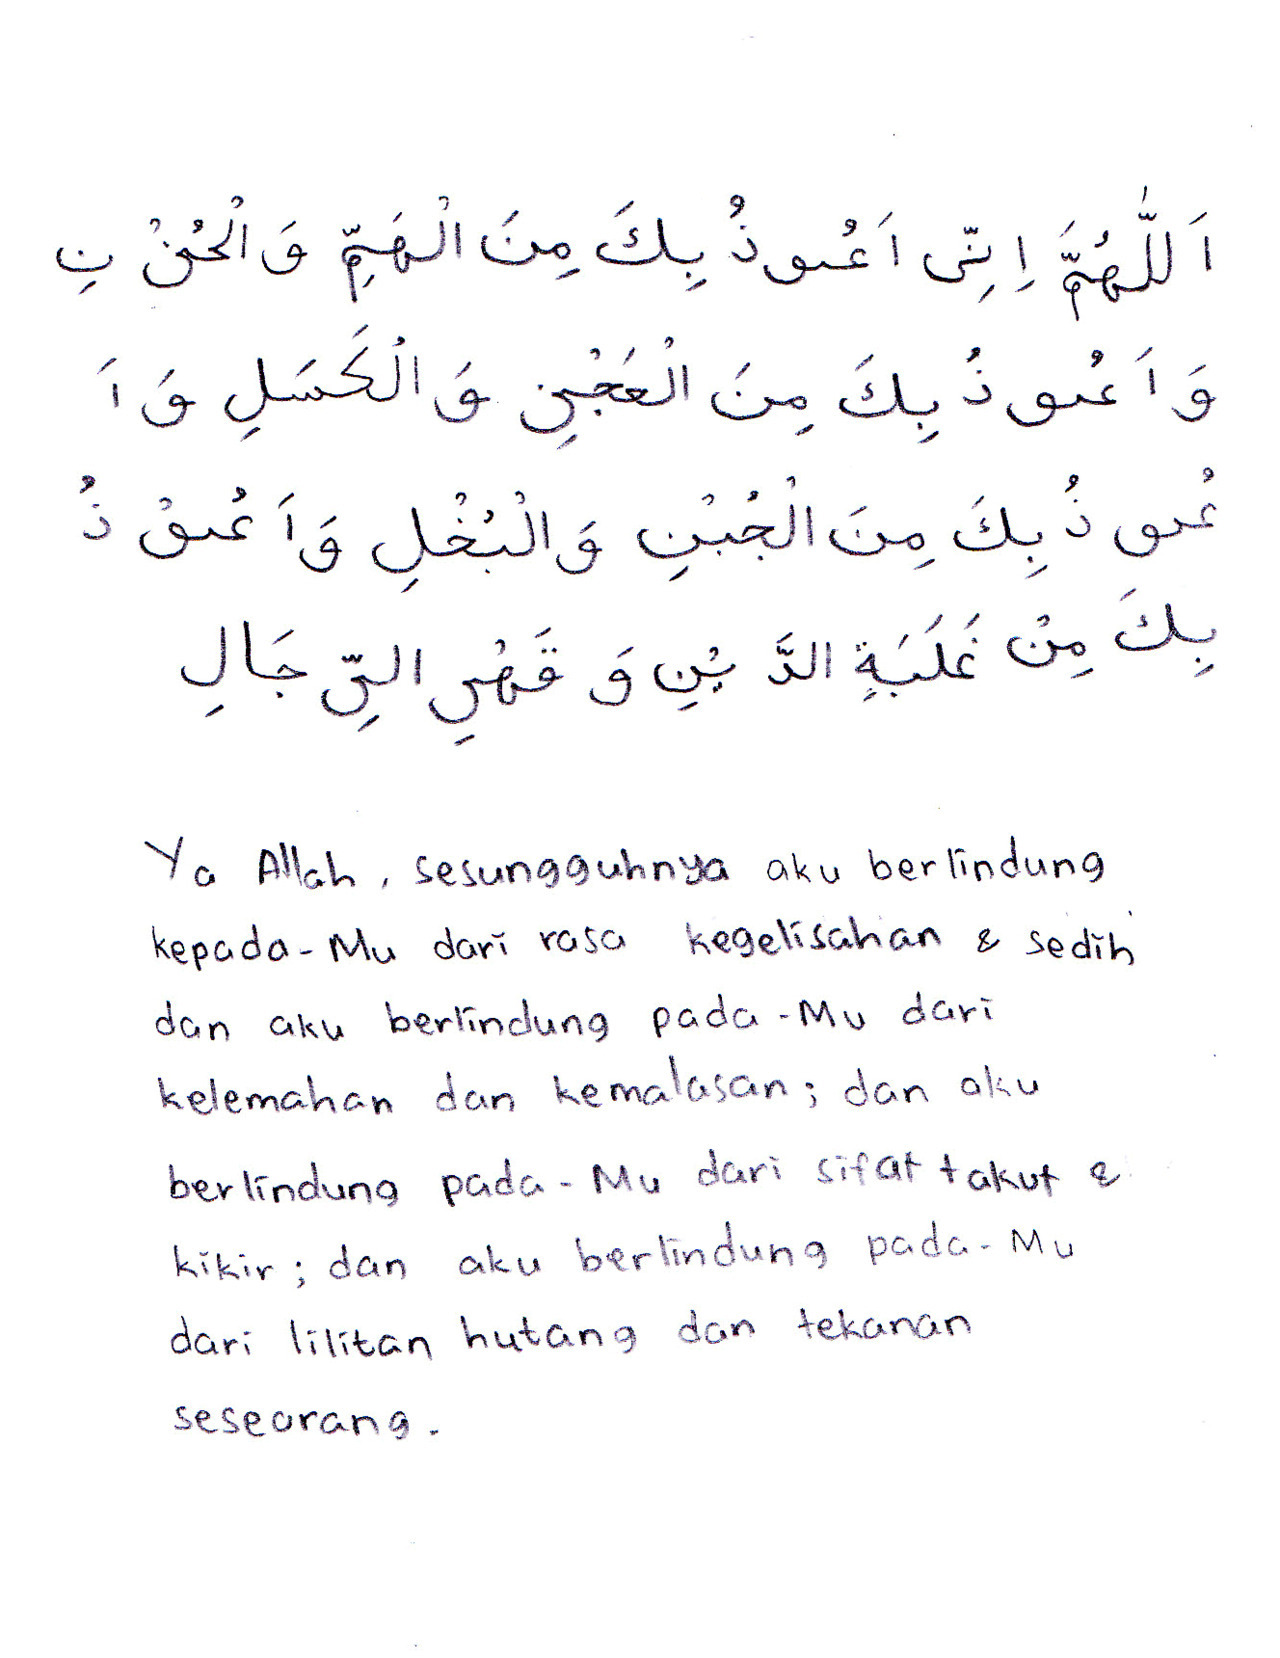 اَللّٰهُمَّ اِنِّى اَعُوذُ بِكَ مِنَ الْهَمِّ وَ الْحُزْ نِ
وَ اَ عُو ذُ بِكَ مِنَ الْعَجْزِ وَ الْكَسَلِ وَ اَ
عُو ذُ بِكَ مِنَ الْجُبْنِ وَ الْبُخْلِ وَ اَ عُوْ ذُ
بِكَ مِنْ غَلَبَةِ الدَّ يْنِ وَ قَهْرِ الرِّ جَالِ
Ya Allah, sesungguhnya aku berlindung
kepada-Mu dari rasa kegelisahan & sedih
dan aku berlindung pada-Mu dari
kelemahan dan kemalasan; dan aku
berlindung pada-Mu dari sifat takut &
kikir; dan aku berlindung pada-Mu
dari lilitan hutang dan tekanan
seseorang.